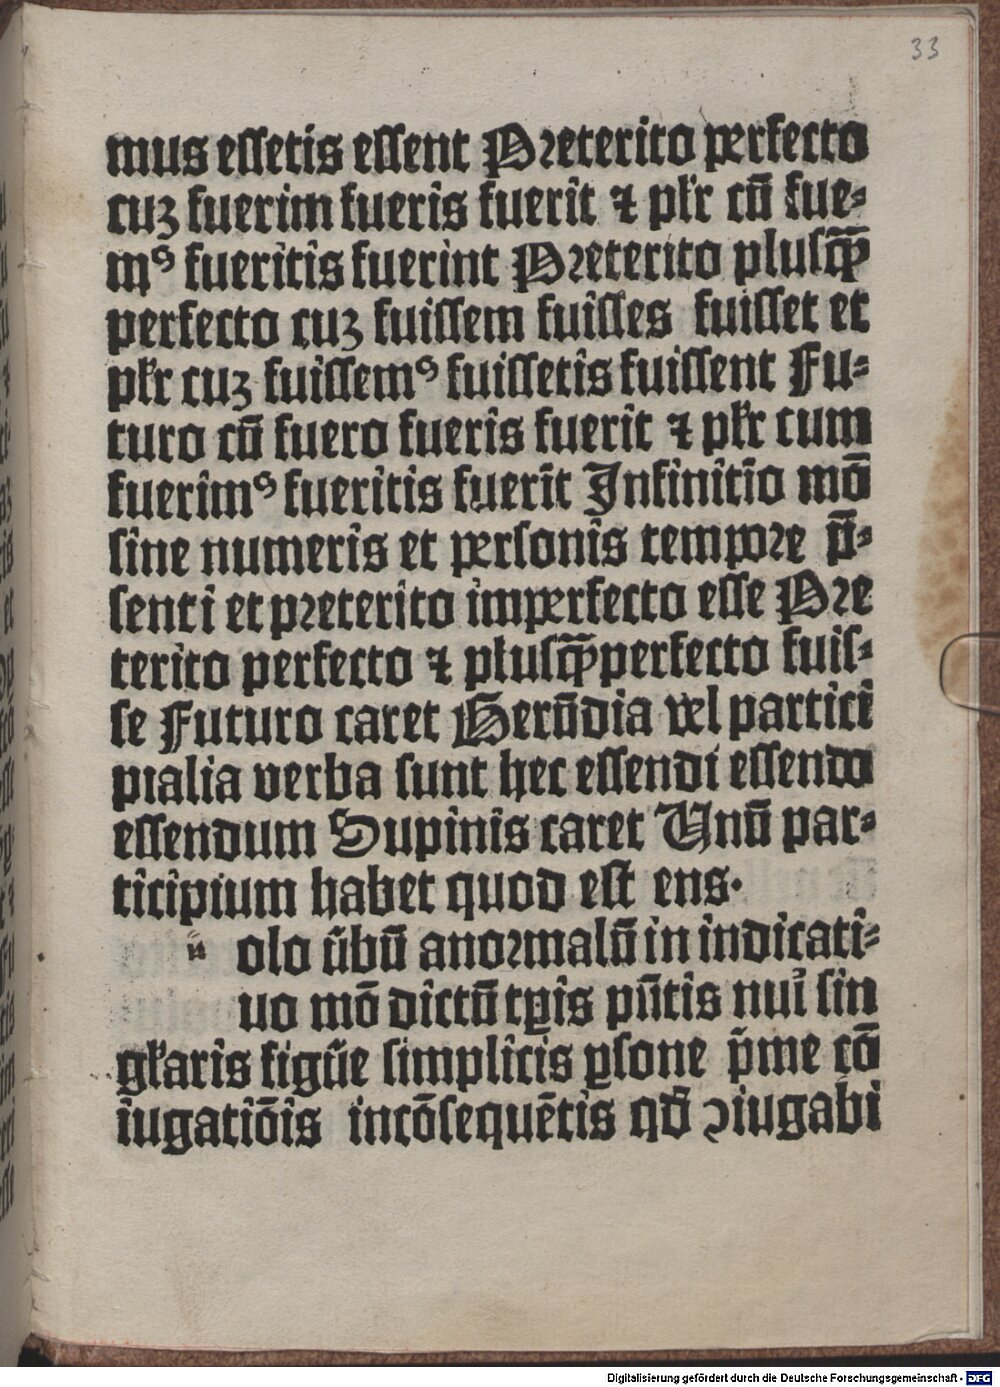 33
mus essetis essent Preterito perfecto
cuꝫ fuerim fueris fuerit ⁊ pl̕r cū fue⸗
mꝰ fueritis fuerint Preterito plusꝙ̄
perfecto cuꝫ fuissem fuisses fuisset et
pl̕r cuꝫ fuissemꝰ fuissetis fuissent Fu⸗
turo cū fuero fueris fuerit ⁊ pl̕r cum
fuerimꝰ fueritis fuerīt Infinitīo mō
sine numeris et personis tempore p̄⸗
senti et preterito imperfecto esse Pre
terito perfecto ⁊ plusꝙ̄perfecto fuis⸗
se Futuro caret Gerūdia vel partici
pialia verba sunt hec essendi essendo
essendum Supinis caret Unū par⸗
ticipium habet quod est ens.
u olo v̄bū anormalū in indicati⸗
uo mō dictū tꝑis pn̄tis nui̕ sin
gl̕aris figur̄e simplicis ꝑsone p̄me cō
iugatiōis incōsequētis qđ ꝯiugabi
Digitalisierung gefördert durch die Deutsche Forschungsgemeinschaft - DFG